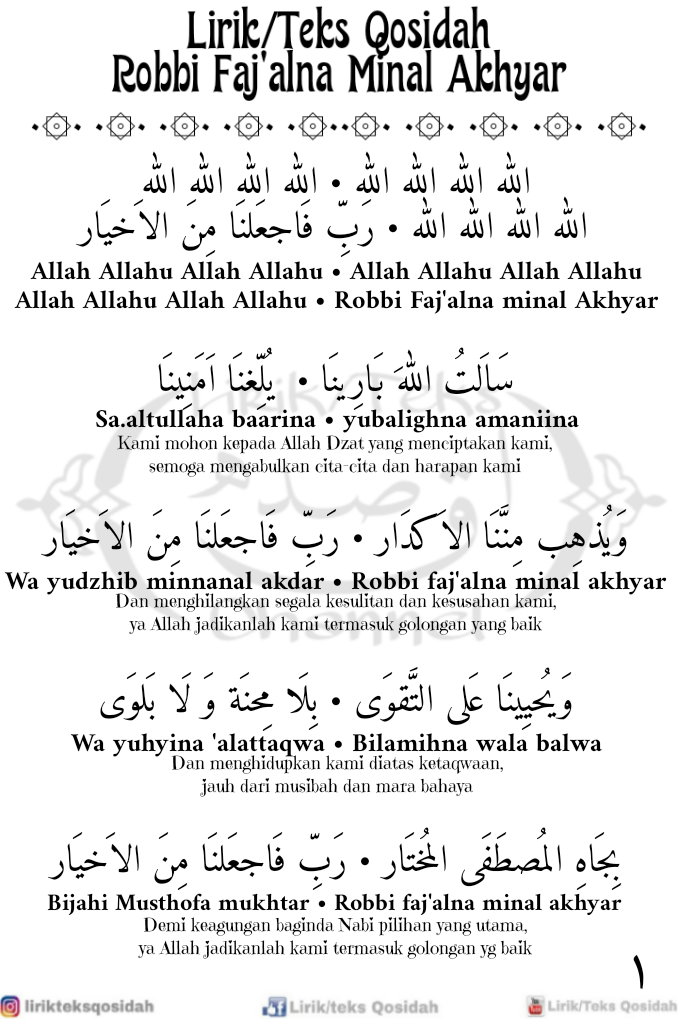 Lirik/Teks Qosidah
Robbi Faj'alna Minal Akhyar
الله الله الله الله • الله الله الله الله
الله الله الله الله • رَبِّ فَاجعَلنَا مِنَ الاَخيَار
Allah Allahu Allah Allahu • Allah Allahu Allah Allahu
Allah Allahu Allah Allahu • Robbi Faj'alna minal Akhyar
سَاَلتُ اللهَ بَارِينَا • يُلِّغنَا اَمَنِينَا
Sa.altullaha baarina • yubalighna amaniina
Kami mohon kepada Allah Dzat yang menciptakan kami,
semoga mengabulkan cita-cita dan harapan kami
وَيُذهِب مِنَّنَا الاَكدَار • رَبِّ فَاجعَلنَا مِنَ الاَخيَار
Wa yudzhib minnanal akdar • Robbi faj'alna minal akhyar
Dan menghilangkan segala kesulitan dan kesusahan kami,
ya Allah jadikanlah kami termasuk golongan yang baik
وَيُحيِينَا عَلى التَّقوَى • بِلَا مِحنَة وَ لَا بَلوَى
Wa yuhyina 'alattaqwa • Bilamihna wala balwa
Dan menghidupkan kami diatas ketaqwaan,
jauh dari musibah dan mara bahaya
بِجَاهِ المُصطَفَى المُختَار • رَبِّ فَاجعَلنَا مِنَ الاَخيَار
Bijahi Musthofa mukhtar • Robbi faj'alna minal akhyar
Demi keagungan baginda Nabi pilihan yang utama,
ya Allah jadikanlah kami termasuk golongan yg baik
١
lirikteksqosidah
Lirik/teks Qosidah
Lirik/Teks Qosidah
Lirik/Teks
قصيده
Channel